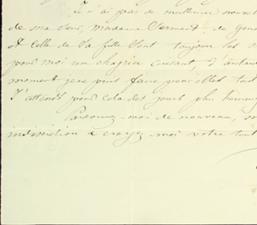 Je n'ai pas de meilleures nouvelles
de ma sœur, Madame Clermont. de
et celle de sa fille sont toujours
pour moi un chagrin cuisant, d'autant
moment je ne puis faire pour elles tout
J'attends pour cela des jours plus heureux
Pardonnez-moi de nouveau, mon
indiscrétion & croyez-moi votre tout